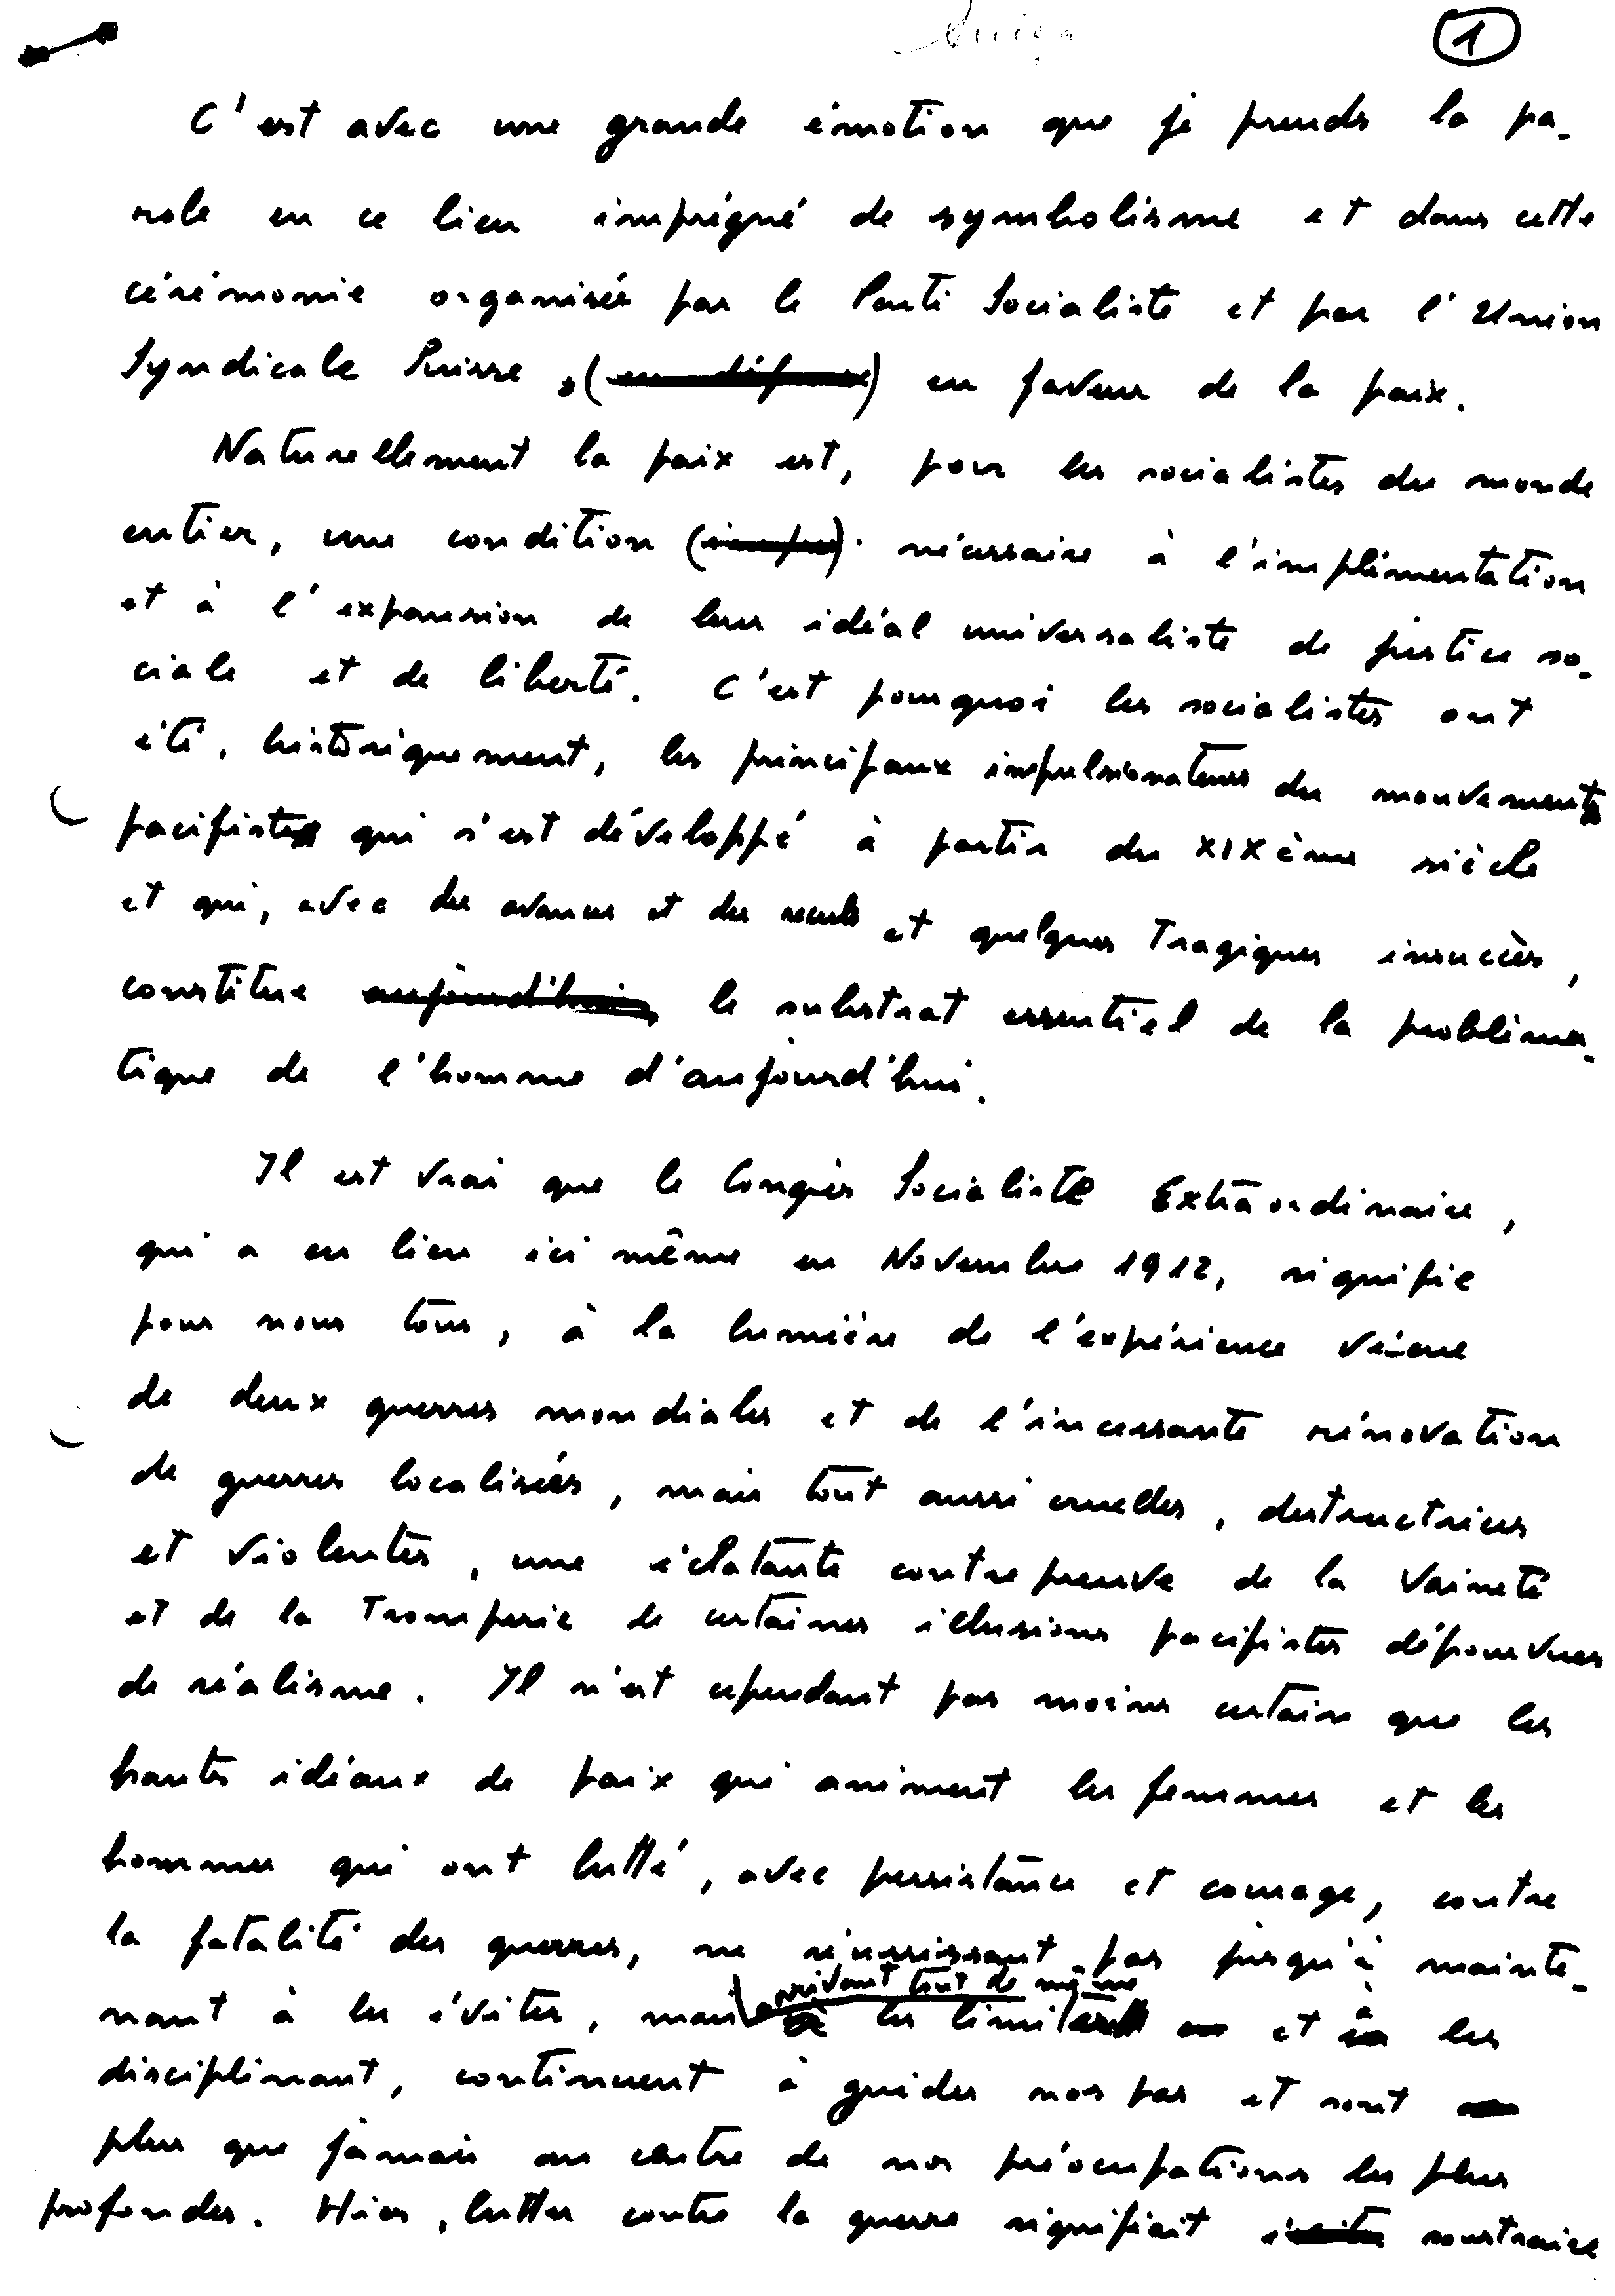 Suiça
1
C'est avec une grande émotion que je prends la pa-
role en ce lieu imprégné de symbolisme et dans cette
cérémonie organisée par le Parti Socialiste et par l'Union
Syndicale Suisse, (en défense) en faveur de la paix.
Naturellement la paix est, pour les socialistes du monde
entier, une condition () nécessaire à l'implémentation
et à l'expansion de leur idéal universaliste de justice so-
ciale et de liberté. C'est pourquoi les socialistes ont
été, historiquement, les principaux impulsionateurs du mouvement
pacifiste qui s'est développé à partir du XIXème siècle
et qui, avec des avances et des reculs et quelques tragiques insuccès,
constitue aujourd'hui le substrat essentiel de la probléma-
tique de l'homme d'aujourd'hui.
Il est vrai que le Congrès Socialiste Extraordinaire,
qui a eu lieu ici même en Novembre 1912, signifie
pour nous tous, à la lumière de l'expérience vécue
de deux guerres mondiales et de l'incessante rénovation
de guerres localisées, mais tout aussi cruelles, destructrices
et violentes, une éclatante contrepreuve de la vaineté
et de la tromperie de certaines illusions pacifistes dépourvues
de réalisme. Il n'est cependant pas moins certain que les
hauts idéaux de paix qui animent les femmes et les
hommes qui ont lutté, avec persistance et courage, contre
la fatalité des guerres, ne réussissant pas jusqu'à mainte-
nant à les éviter, mais arrivant tout de même à les limiter et les
disciplinant, continuent à guider nos pas et sont
plus que jamais au centre de nos préocupations les plus
profondes. Hier, lutter contre la guerre signifiait soustraire